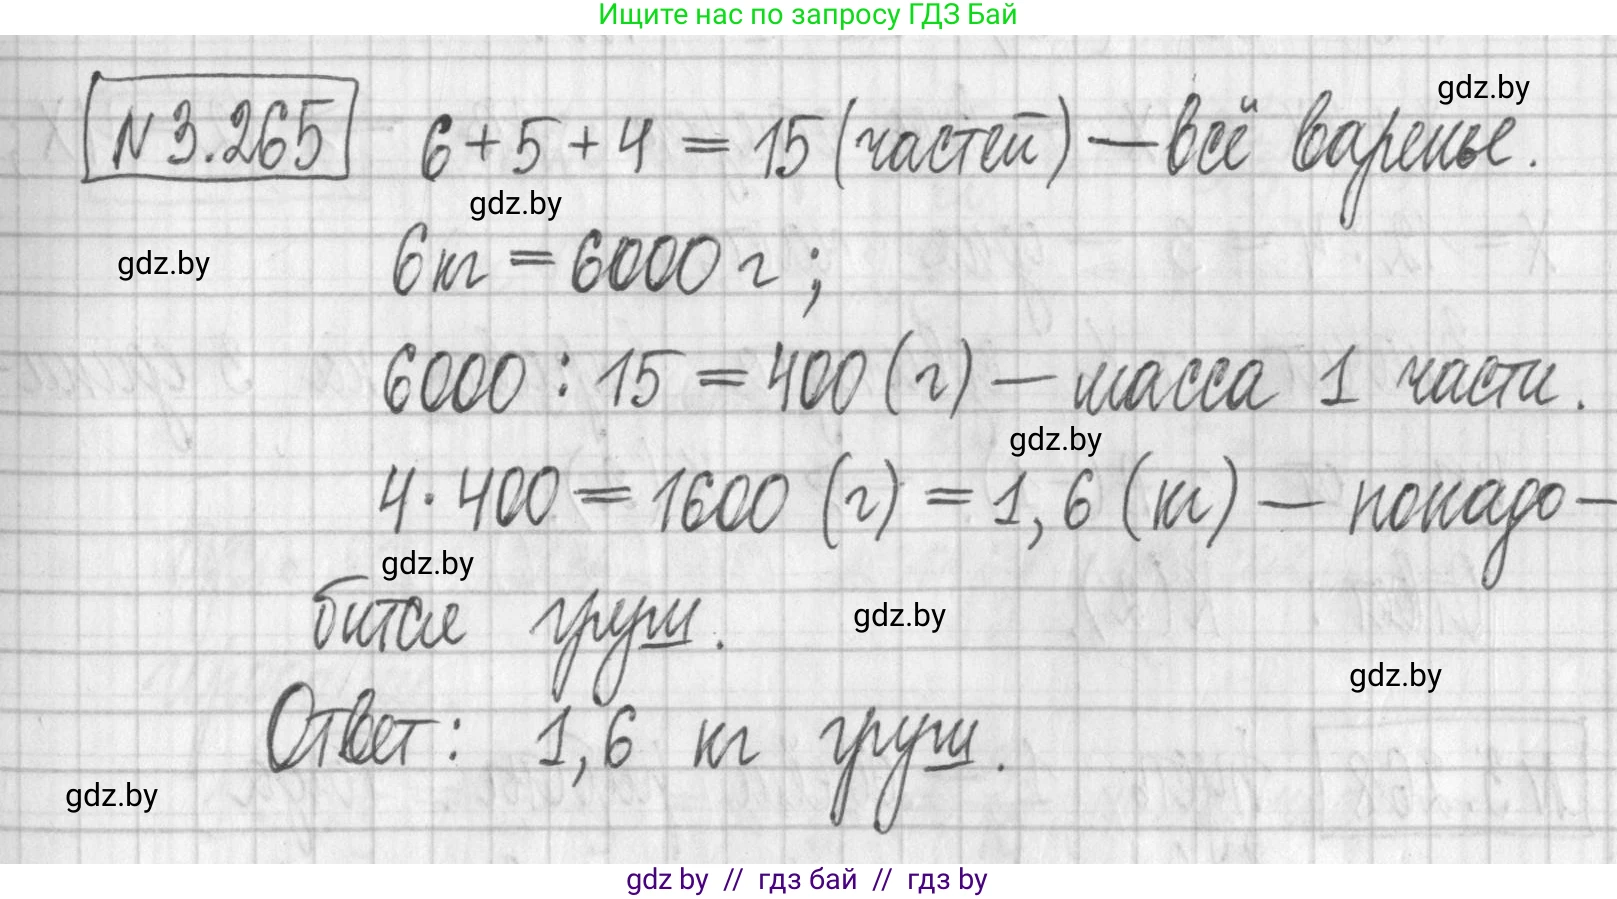 Ищите нас по запросу ГДЗ Бай
gdz.by
N 3.265 6 + 5 + 4 = 15 (частей) — всё варенье.
gdz.by
gdz.by
6 кг = 6000 г ;
6000 : 15 = 400 (г) — масса 1 части.
gdz.by
4 · 400 = 1600 (г) = 1,6 (кг) — понадо-
gdz.by
бится груш.
gdz.by
gdz.by
Ответ: 1,6 кг груш.
gdz.by
gdz by // гдз бай // гдз by